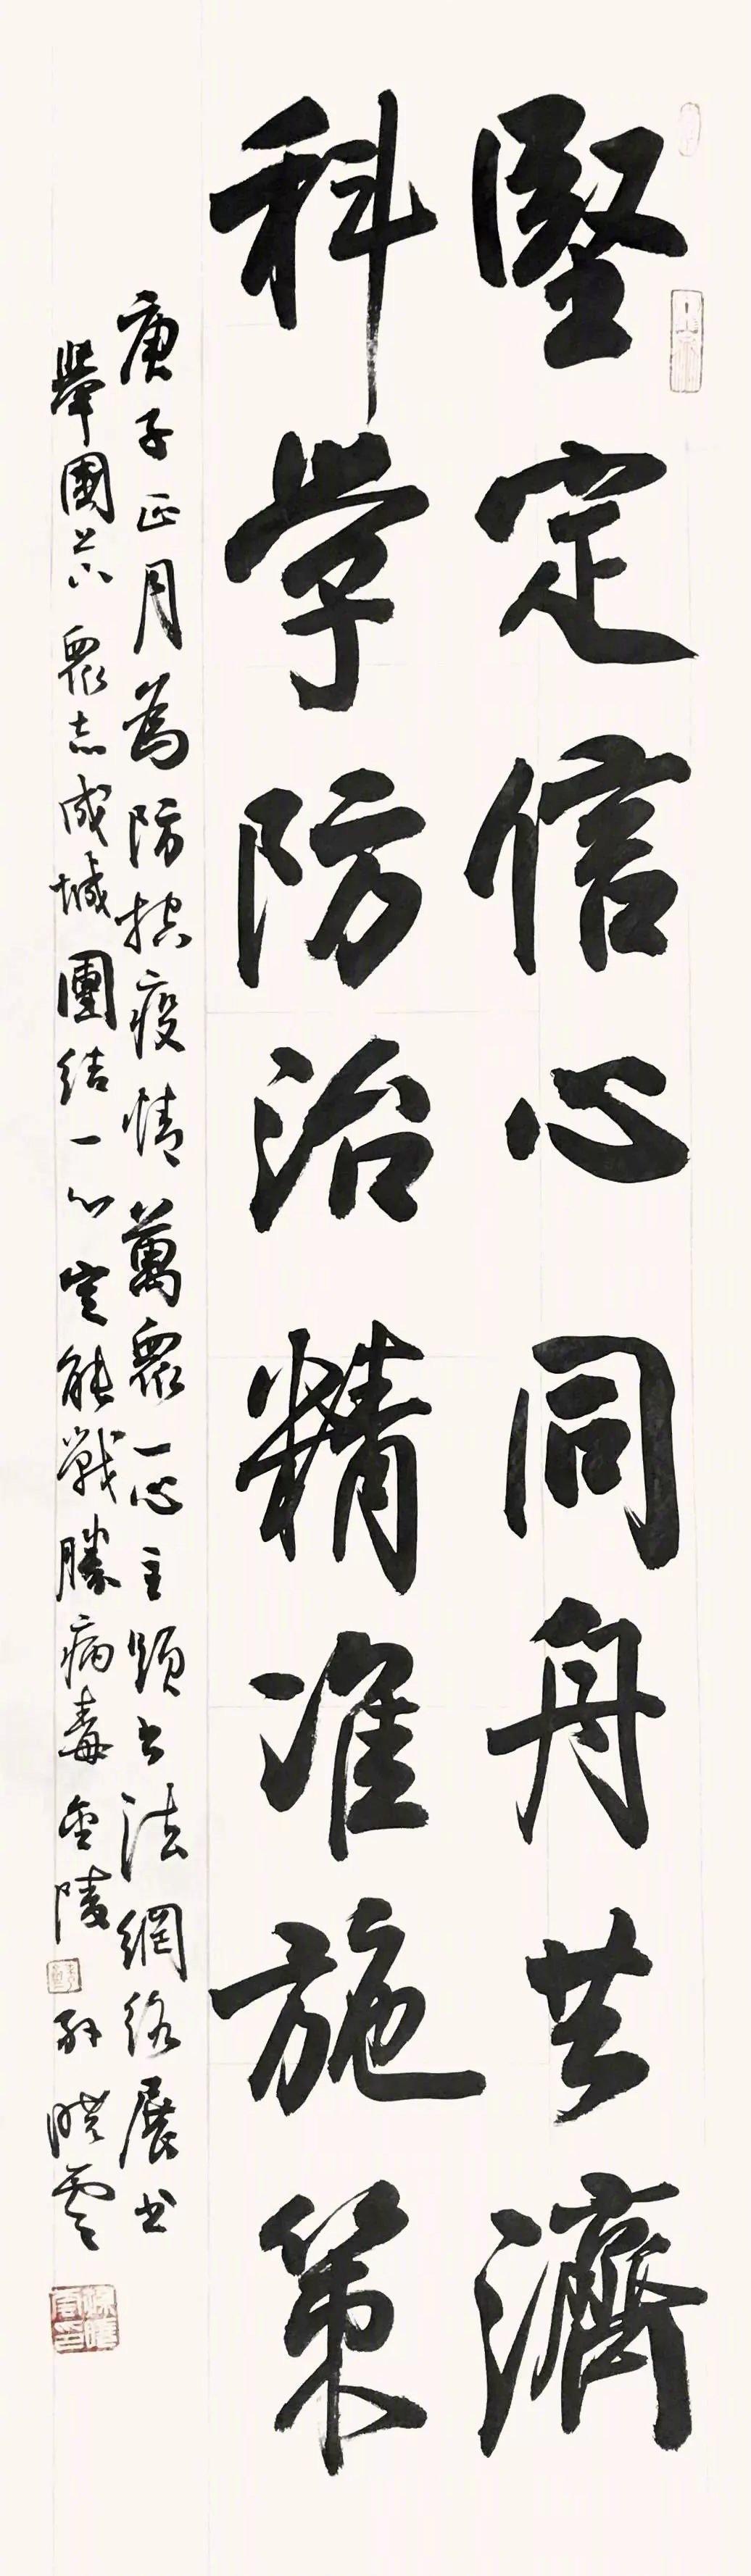 堅定信心同舟共濟
科学防治精准施策
庚子正月為防控疫情萬眾一心主題書法網絡展書
舉國上下眾志成城團結一心定能戰勝病毒金陵孫曉雲